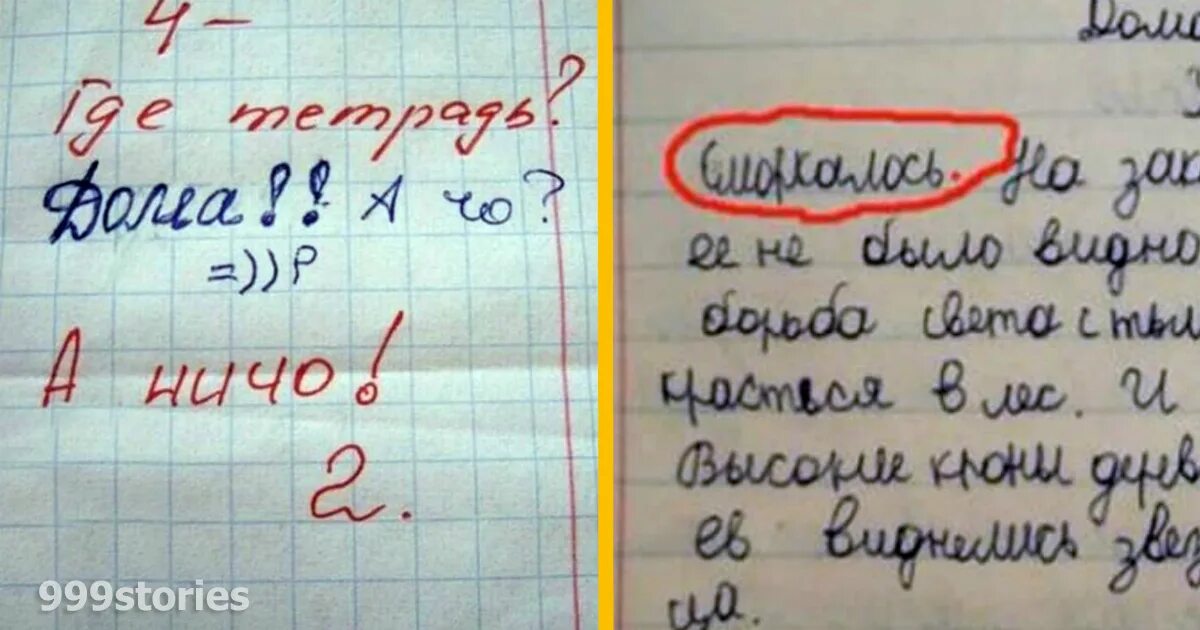 4-
Где тетрадь?
Дома!! А чо?
=))Р
А ничо!
2.
999stories
Дома
Сморкалось. На зак
ее не было видно
борьба света с тьм
красться в лес. И
Высокие кроны дерев
ев виднелись звез
ца.